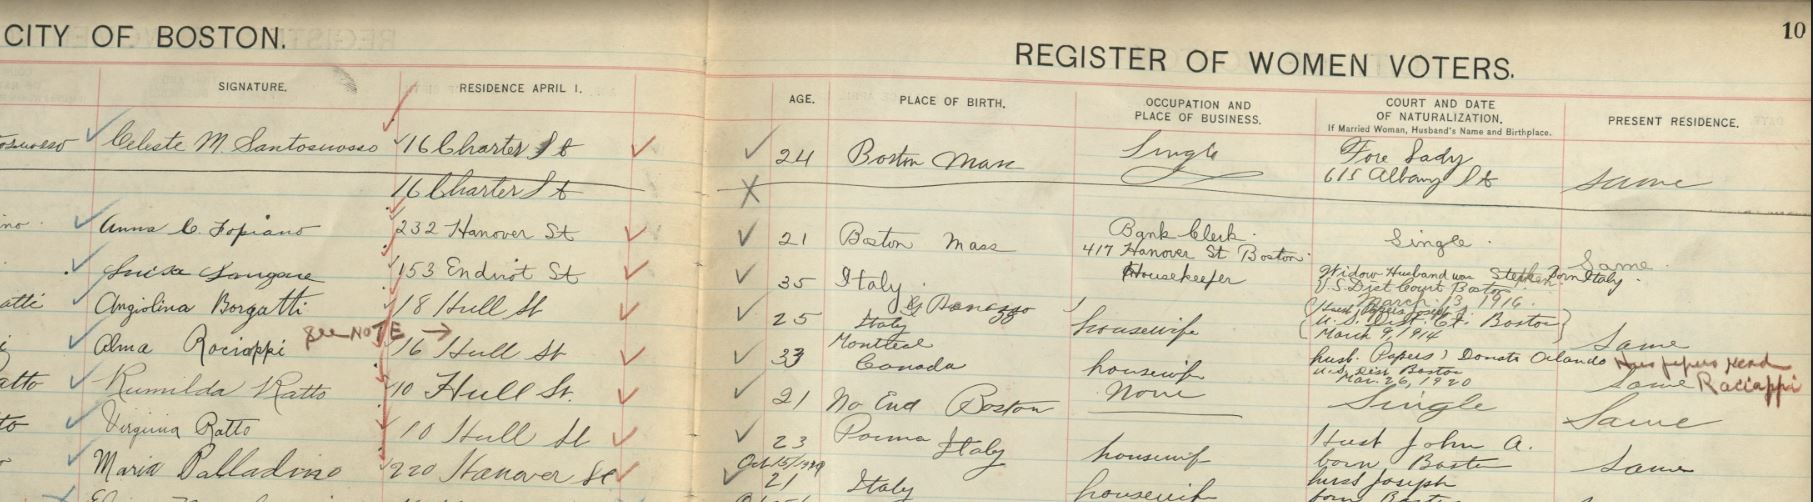 CITY OF BOSTON.
REGISTER OF WOMEN VOTERS.
10
SIGNATURE.
RESIDENCE APRIL 1.
AGE.
PLACE OF BIRTH.
OCCUPATION AND
PLACE OF BUSINESS.
COURT AND DATE
OF NATURALIZATION.
If Married Woman, Husband's Name and Birthplace.
PRESENT RESIDENCE.
Celeste M. Santosuosso 16 Charter St 24 Boston Mass Single Fore Lady
615 Albany St same
16 Charter St
Anna C. Fopiano 232 Hanover St 21 Boston Mass Bank Clerk.
417 Hanover St Boston. Single. Same.
153 Endicot St 35 Italy Housekeeper Widow Husband was Stephen born Italy.
U.S. Dist Court Boston
March 13, 1916.
Angiolina Borgatti 18 Hull St 25 Italy housewife
U.S. Dist Ct. Boston
March 9, 1914 Same
See NOTE →
Alma Raciappi 16 Hull St 33 Montreal
Canada housewife husb. Papers) Donato Orlando
U.S. Dist Boston
Mar. 26, 1920 Same
papers read
Raciappi
Rumilda Ratto 10 Hull St. 21 No End Boston None Single Same
Virginia Ratto 10 Hull St 23 Parma Italy housewife Hust John A.
born Boston same
Maria Palladino 220 Hanover St Oct 15/1920
21 Italy housewife husb Joseph
born Boston